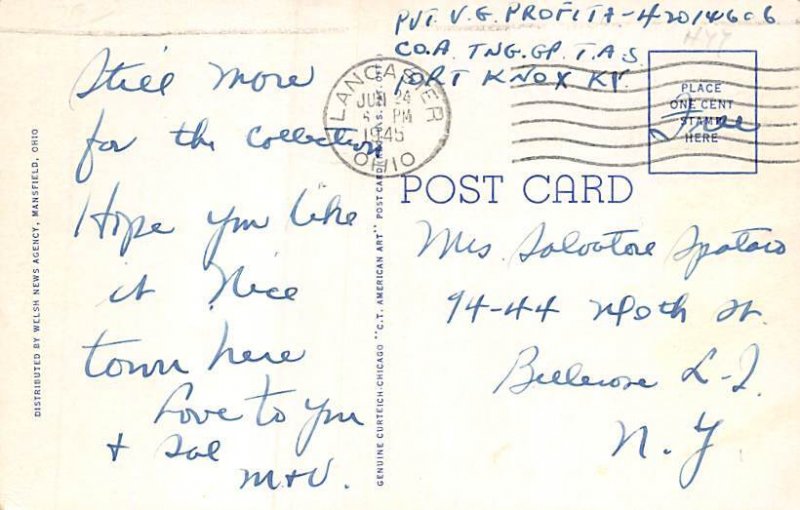 PVT. V. G. PROFITA - 42014606
CO. A TNG. GP. T. A. S.
FORT KNOX KY.
LANCASTER
JUN 24
PM
1945
OHIO
PLACE
ONE CENT
STAMP
HERE
Free
Still more
for the collection
Hope you like
it Nice
town here
Love to you
+ Sal
M+V.
POST CARD
Mrs. Salvatore Spataro
94-44 St.
Bellerose L-I.
N. Y
DISTRIBUTED BY WELSH NEWS AGENCY, MANSFIELD, OHIO
GENUINE CURTEICH-CHICAGO "C.T. AMERICAN ART" POST CARD